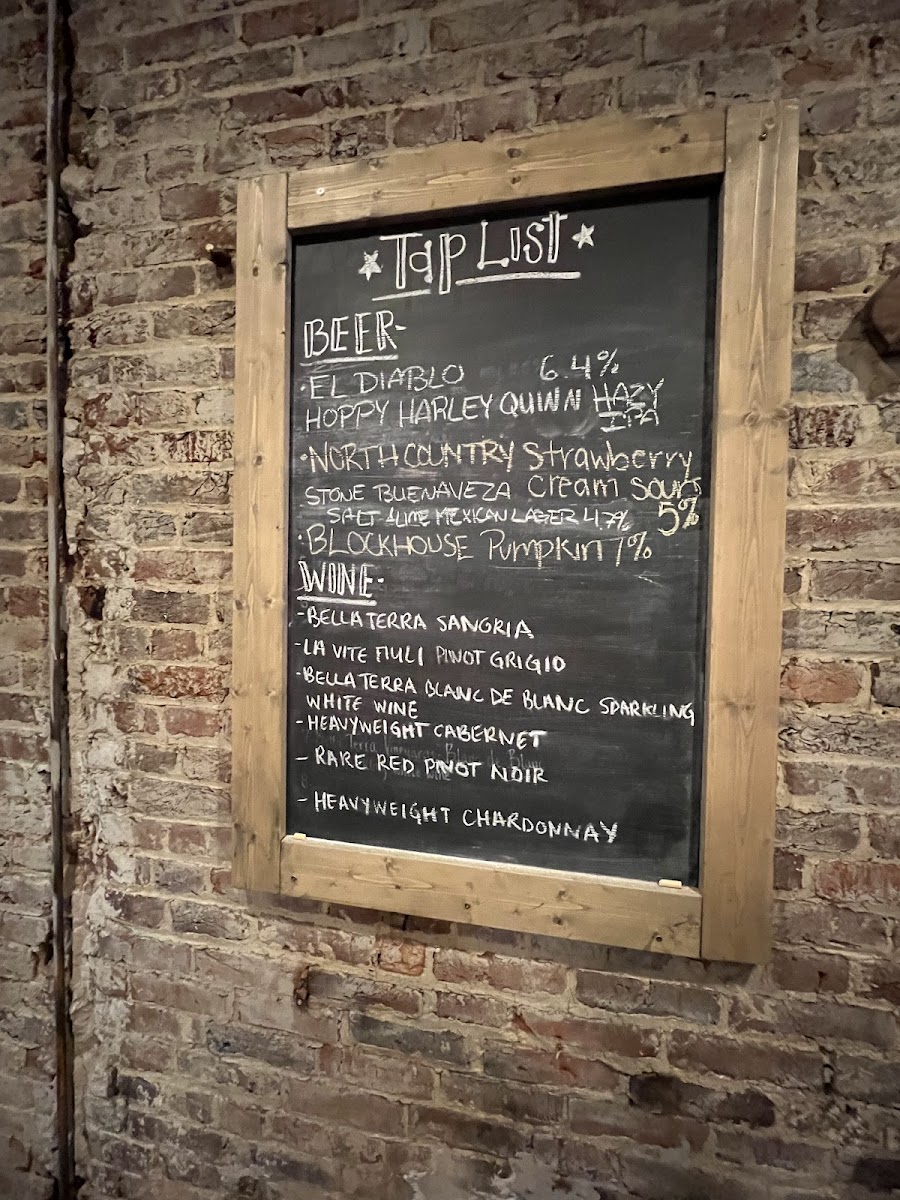 Tap List
BEER-
•EL DIABLO 6.4%
HOPPY HARLEY QUINN HAZY
IPA
•NORTH COUNTRY Strawberry
STONE BUENAVEZA Cream Sour
SALT & LIME MEXICAN LAGER 4.7% 5%
•BLOCKHOUSE Pumpkin 7%
WINE-
-BELLA TERRA SANGRIA
-LA VITE FIULI PINOT GRIGIO
-BELLA TERRA BLANC DE BLANC SPARKLING
WHITE WINE
-HEAVYWEIGHT CABERNET
- RARE RED PINOT NOIR
- HEAVYWEIGHT CHARDONNAY